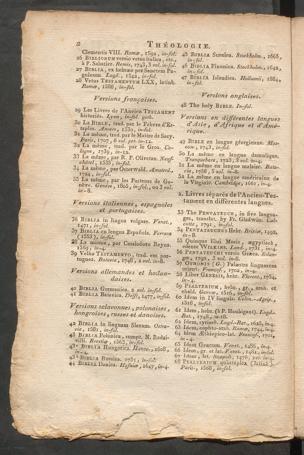 2 THÉOLOGIE.
Clementis VIII. Romæ, 1592, in-fol.
26 BIBLIORUM versio vetus italica, etc.,
à P. Sabatier. Remis, 1743, 3 vol. in-fol.
27 BIBLIA, ex
Lugd., 1542, in-fol.
28 VETUS TESTAMENTUM LXX, latinè.
Romæ, 1588, in-fol.
Versions françaises.
29 Les Livres de l'Ancien TESTAMENT
historiés. Lyon, in-fol. goth.
30 La BIBLE, trad. par le Febvre d'Etaples.
Anvers, 1530, in-fol.
31 La même, trad. par le Maistre de Sacy.
Paris, 1707, 8 vol. pet. in-12.
32 La même, trad. par le Gros. Cologne,
1739, in-12.
33 La même, par R. P. Olivetan. Neufchâtel,
1535, in-fol.
34 La même, par
in-fol.
35 La même, par les Pasteurs de Genève.
Genève, 1805, in-fol., ou 3 vol.
in-8.
Versions italiennes, espagnoles
et portugaises.
36 BIBLIA in lingua volgare. Venet.,
1471, in-fol.
37 BIBLIA en lengua Española. Ferrara
(1553), in-fol.
38 La misma, por Cassiodoro Reyna.
1569, in-4.
39 Velho TESTAMENTO, trad. em portugues.
Batavia, 1748, 2 vol. in-8.
Versions allemandes et hollandaises.
40 BIBLIA Germanica. 2 vol. in-fol.
41 BIBLIA Batavica. Delft, 1477, in-fol.
Versions sclavonnes, polonaises,
hongroises, russes et danoises.
42 BIBLIA in linguam Slavam.
1581, in-fol.
43 BIBLIA Polonica, compt. N. Radzivilli.
1563, in-fol.
43* BIBLIA Hungarica. 1608,
in-4.
43** BIBLIA Russica. 1751, in-fol.
44 BIBLIA Danica. Hafniæ, 1647, in-4.
45 BIBLIA Suenica. Stockholm., 1655,
in-fol.
46 BIBLIA Finnica. Stockholm., 1642,
in-fol.
47 BIBLIA Islandica. 1584,
in-fol.
Versions anglaises.
48 The holy BIBLE. In-fol.
Versions en différentes langues
d'Asie, d'Afrique et d'Amérique.
49 BIBLE en langue géorgienne. Moscou,
1743, in-fol.
50 La même en langue tamulique.
Tranquebar, 1728, 2 vol. in-4.
51 La même en langue malaise. Batavia,
1758, 5 vol. in-8.
52 La même en langue américaine de
la Virginie. Cambridge, 1661, in-4.
2. Livres séparés de l'Ancien Testament
en différentes langues.
53 The PENTATEUCH, in five languages,
transfer. by Fr. Gladwin.
1791, in-fol.
54 PENTATEUCHUS Hebr. Brixiæ, 1492,
in-8.
55 Quinque libri Mosis, ægyptiacè;
edente WILKINS. Lond., 1731, in-4.
56 PENTATEUCHI versio Græca.
1790, 2 vol. in-8.
57 OKRONIS (G.)
Francof., 1702, in-4.
58 Liber GENESIS, hebr. Florent., 1754,
in-4.
59 PSALTERIUM, hebr., gr., arab. et
chald. Genuæ, 1516, in-fol.
60 Idem in IV linguis. Coln.-Agrip.,
1518, in-fol.
61 Idem, hebr. (à P. Montigni). Lugd.-Bat.,
1748, in-18.
62 Idem, syriacè. Lugd.-Bat., 1625, in-4.
63 Idem, cophto-arab. Romæ, 1744, in-4.
64 Idem, æthiopicè-lat. Francof., 1701,
in-4.
65 Idem, Græcum. Venet., 1486, in-4.
66 Idem, gr. et lat. Venet., 1481, in-fol.
67 Idem, lat. Mogunt., 1476, pet. in-4.
68 PSALTERIUM quincuplex (latin.)
Paris., 1508, in-fol.